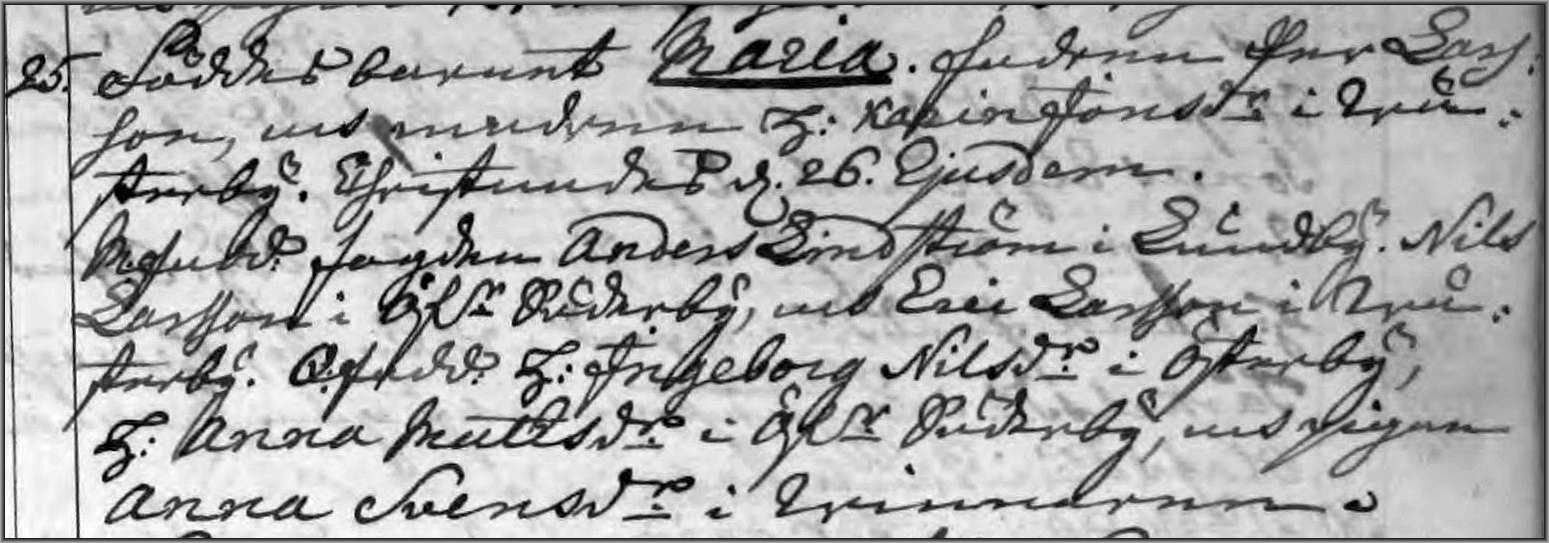 25. Föddes barnet Maria. fadren Per Lars-
son, och modren H: Karin Jonsdr i Wrå-
sterby. Christnades d. 26. Ejusdem.
M.fadd: fogden Anders Lindström i Lundby. Nils
Larsson i Öfr Röderby, och Eric Larsson i Wrå-
sterby. Q.fadd: H: Ingeborg Nilsdr i Österby,
H: Anna Mattsdr i Öfr Röderby, och pigan
Anna Svensdr i